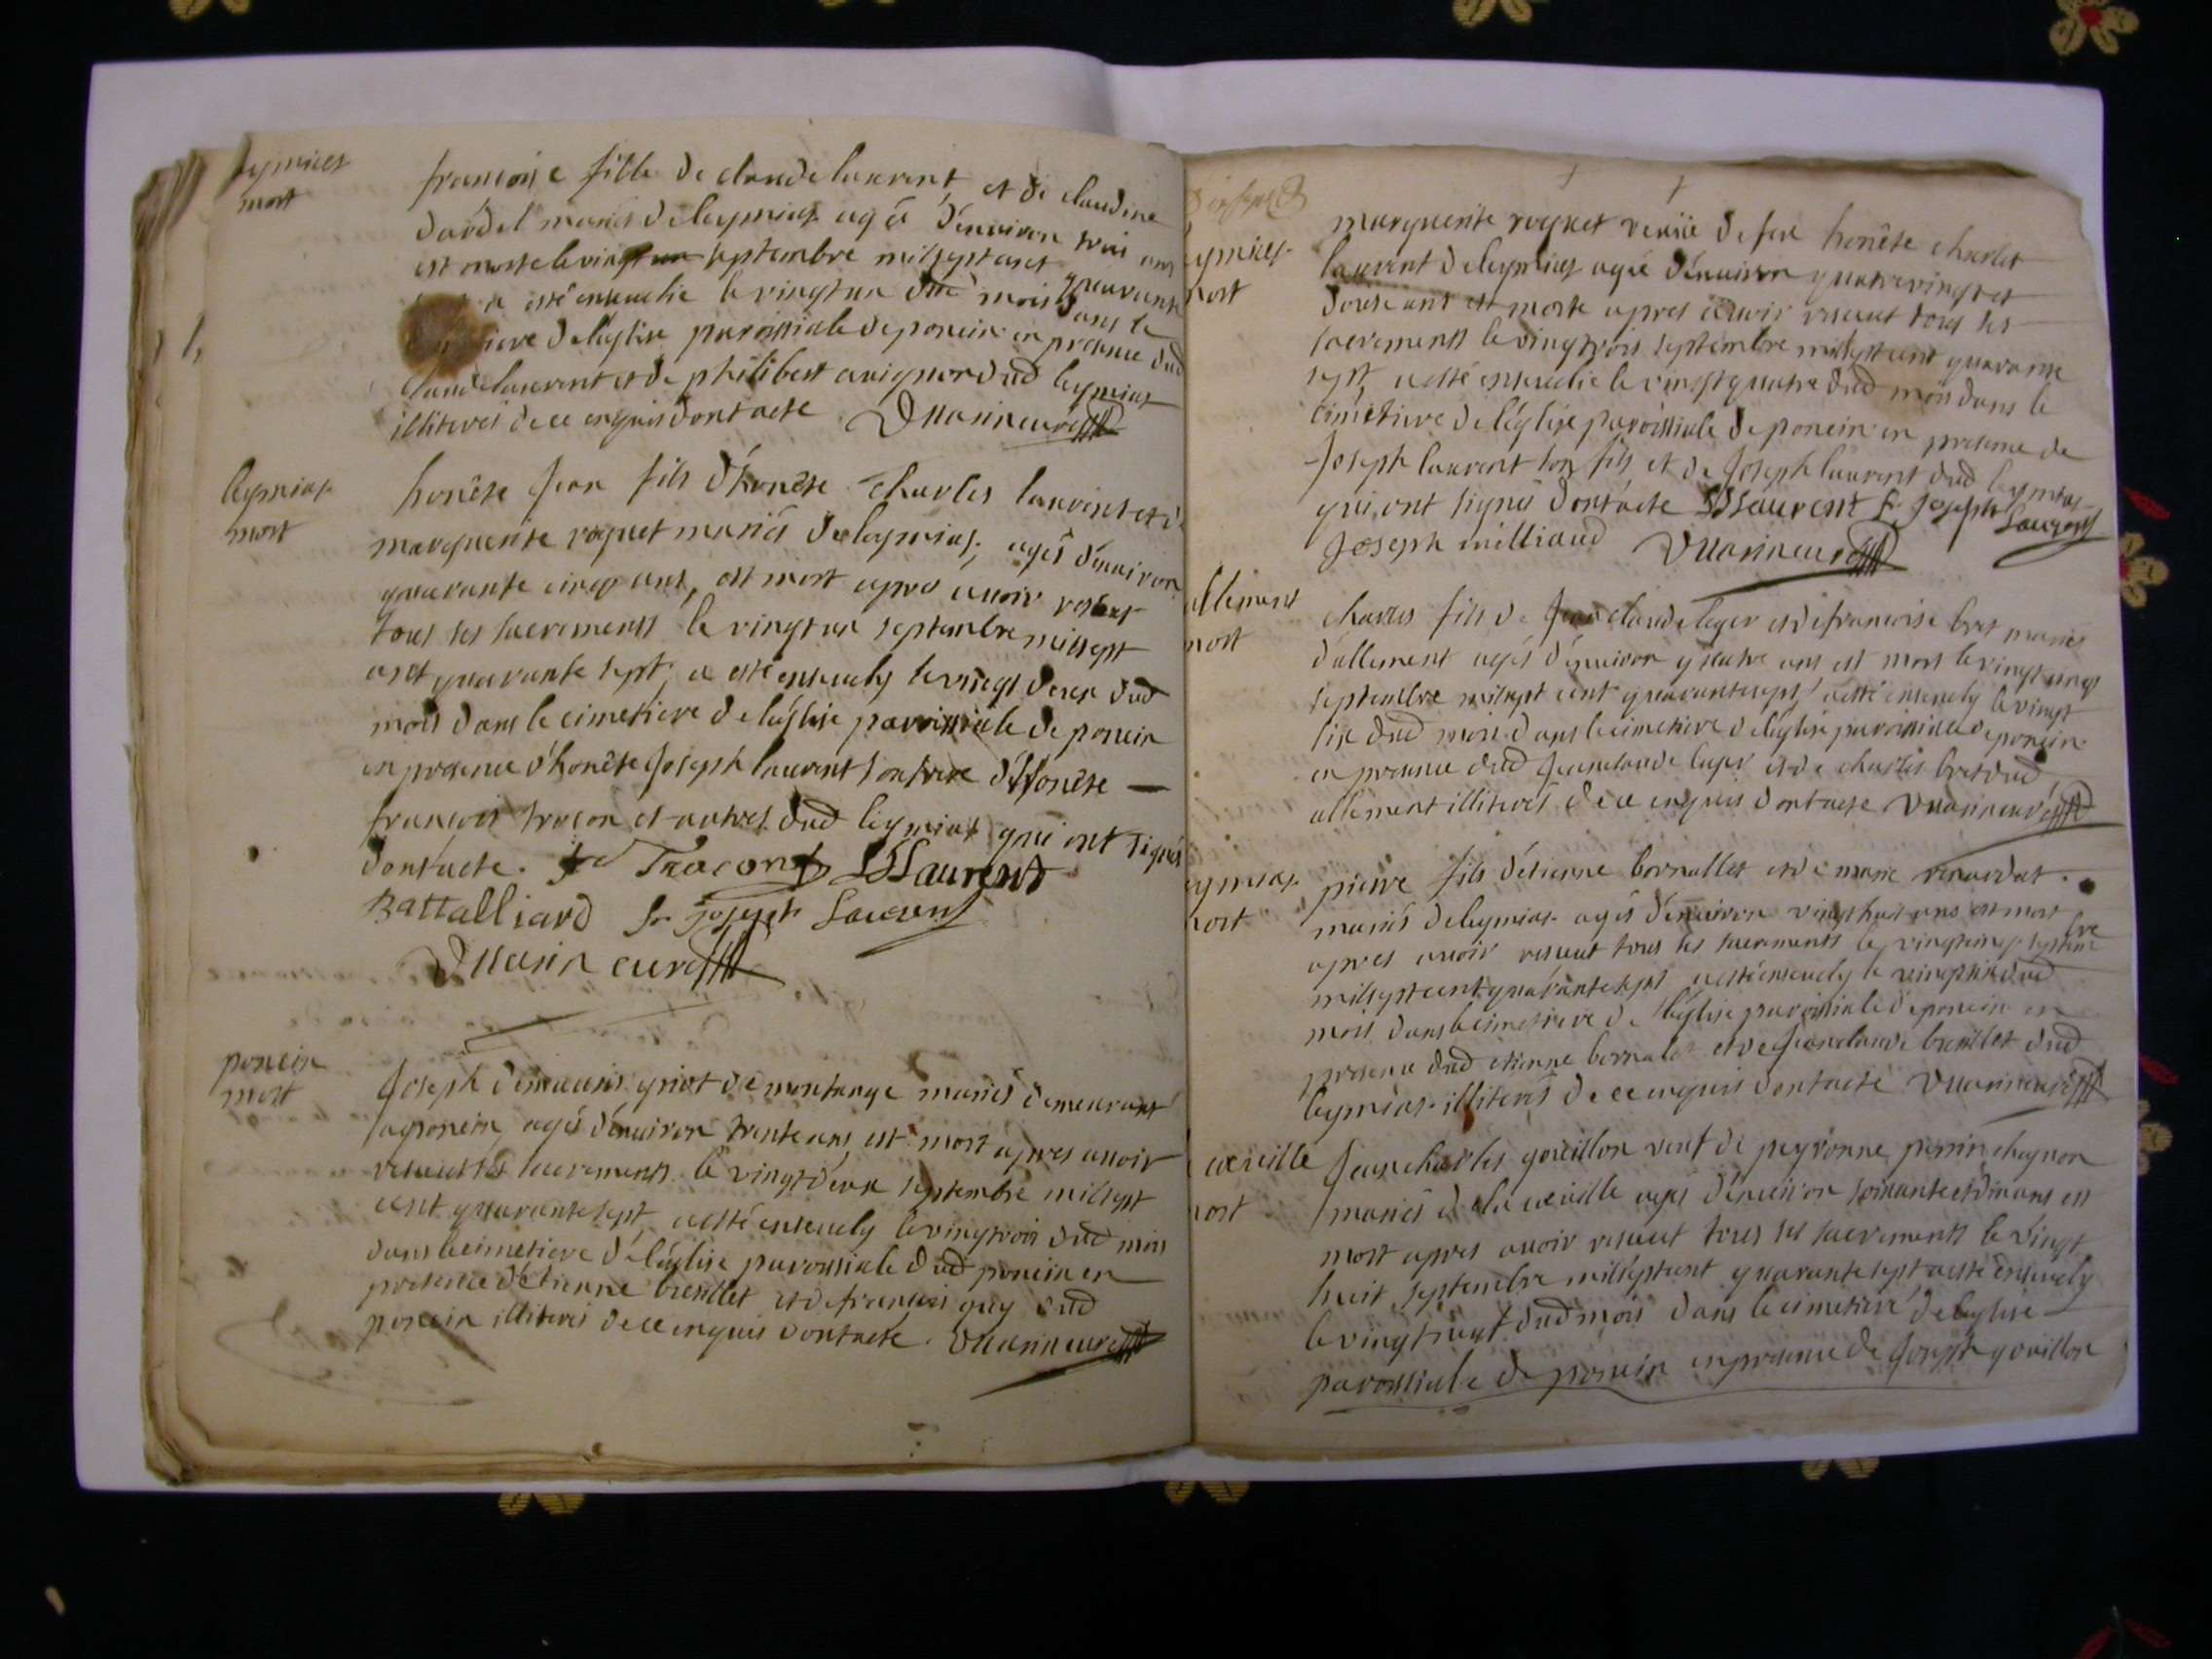 leymiat
mort
françoise fille de claude laurent et de claudine
dardel mariés de leymiat agée d'environ trois ans
est morte le vingt septembre mil sept cent
quarante
a esté ensevelie le vingt un dud mois dans le
de l'église paroissiale de poncin en presence dud
claude laurent et de philibert avignor dud leymiat
illiterés de ce enquis dont acte D curé
leymiat
mort
honête jean fils d'honête charles laurent et de
marguerite roquet mariés de leymiat, agé d'environ
quarante cinq ans, est mort apres avoir receut
tous ses sacrements le vingt un septembre mil sept
cent quarante sept, a esté ensevely le vingt deux dud
mois dans le cimetiere de l'église paroissiale de poncin
en presence d'honête joseph laurent son frere d'honête
françois tracon et autres dud leymiat qui ont signés
dont acte. Tracon Laurent
Battalliard joseph Laurent
curé
poncin
mort
joseph de montange mariés demeurant
a poncin, agé d'environ trente ans, est mort apres avoir
receut ses sacrements le vingt deux septembre mil sept
cent quarante sept, a esté ensevely le vingt trois dud mois
dans le cimetiere de l'église paroissiale dud poncin en
presence d'étienne breillet et de françois guy dud
poncin illiterés de ce enquis dont acte. curé
leymiat
mort
marguerite roquet veuve de feu honête charles
laurent de leymiat agée d'environ quatre vingt et
douze ans est morte apres avoir receut tous ses
sacrements le vingt trois septembre mil sept cent quarante
sept, a esté ensevelie le vingt quatre dud mois dans le
cimetiere de l'église paroissiale de poncin en presence de
joseph laurent son fils et de joseph laurent dud leymiat
qui ont signés dont acte Laurent joseph Laurent
joseph milliand curé
allement
mort
charles fils de jean claude leger et de francoise bret mariés
d'allement agé d'environ quatre ans est mort le vingt cinq
septembre mil sept cent quarante sept, a esté ensevely le vingt
six dud mois dans le cimetiere de l'église paroissiale de poncin
en presence dud jean claude leger et de charles bret dud
allement illiterés de ce enquis dont acte curé
leymiat
mort
pierre fils d'étienne bornallet et de marie
mariés de leymiat agé d'environ vingt huit ans est mort
apres avoir receut tous ses sacrements le vingt cinq septembre
mil sept cent quarante sept a esté ensevely le vingt six dud
mois dans le cimetiere de l'église paroissiale de poncin en
presence dud etienne bornalet et de jean claude breillet dud
leymiat illiterés de ce enquis dont acte curé
cueille
mort
jean charles goveillon veuf de peyronne perrin chagnon
mariés de la cueille agé d'environ soixante et dix ans est
mort apres avoir receut tous ses sacrements le vingt
huit septembre mil sept cent quarante sept a esté ensevely
le vingt neuf dud mois dans le cimetiere de l'eglise
paroissiale de poncin en presence de joseph goveillon